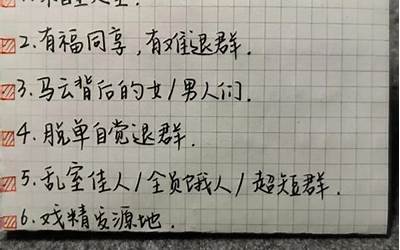 2.有福同享,有难退群.
3.马云背后的女/男人们.
4.脱单自觉退群.
5.乱室佳人/全员饿人/超短群.
6.戏精发源地.